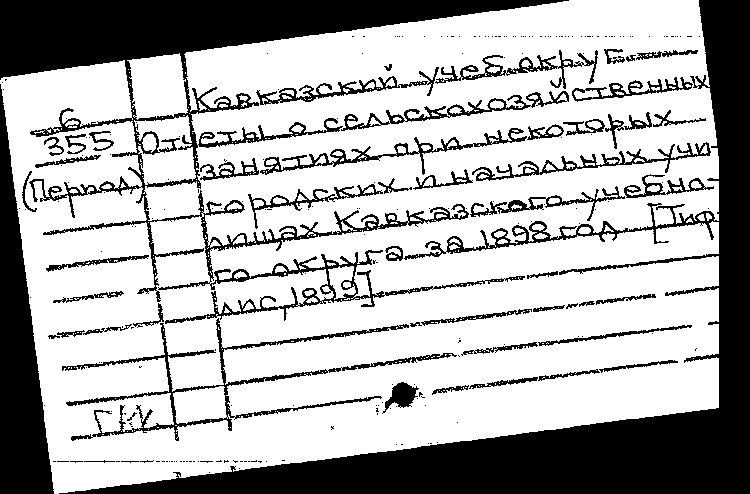 Кавказский учеб.округ
6
355
(Период)
Отчеты о сельскохозяйственных
занятиях при некоторых
городских и начальных учи-
лищах Кавказского учебно-
го округа за 1898 год [Тиф-
лис, 1899]
ГКК